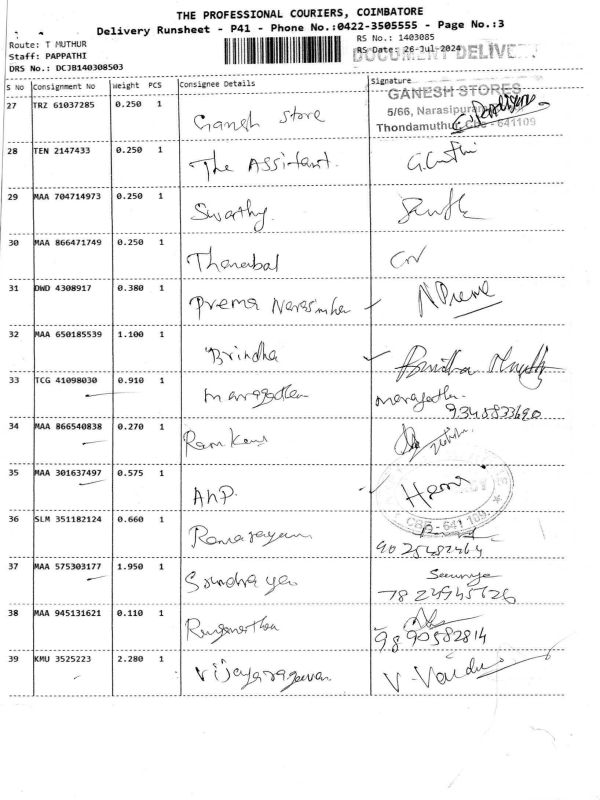 THE PROFESSIONAL COURIERS, COIMBATORE
Delivery Runsheet - P41 - Phone No.:0422-3505555 - Page No.:3
Route: T MUTHUR
RS No.: 1403085
Staff: PAPPATHI
RS Date: 26-Jul-2024
DOCUMENT DELIVE
DRS No.: DCJB140308503
S No Consignment No Weight PCS Consignee Details Signature
27 TRZ 61037285 0.250 1 Ganesh Store
GANESH STORES
5/66, Narasipuram
Thondamuthur, CBE - 641109
28 TEN 2147433 0.250 1 The Assistant.
29 MAA 704714973 0.250 1 Swathy.
30 MAA 866471749 0.250 1 Thanabal
31 DWD 4308917 0.380 1 Prema Narasimha N Prema
32 MAA 650185539 1.100 1 Brindha Brindha
33 TCG 41098030 0.910 1 maragatha maragatha
9345833690
34 MAA 866540838 0.270 1 Ram
35 MAA 301637497 0.575 1 AhP. Hari
36 SLM 351182124 0.660 1 Ramarayan
CBE - 641 109.
9025482464
37 MAA 575303177 1.950 1 Soundraya Sounrya
7824945626
38 MAA 945131621 0.110 1
9890582814
39 KMU 3525223 2.280 1 Vijayaragavan. V.